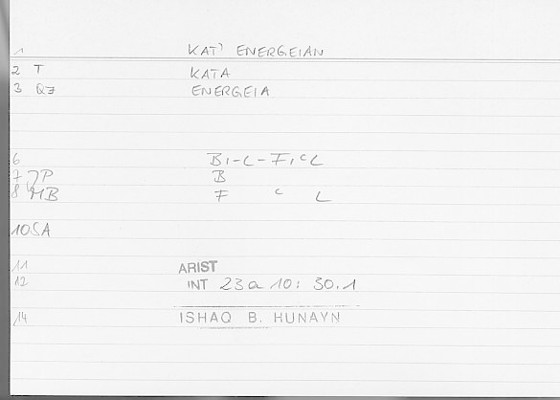 1 KAT' ENERGEIAN
2 T KATA
3 QZ ENERGEIA
6 BI-L-FIcL
7 JP B
8 MB F c L
10 SA
11 ARIST
12 INT 23a 10: 30.1
14 ISHAQ B. HUNAYN